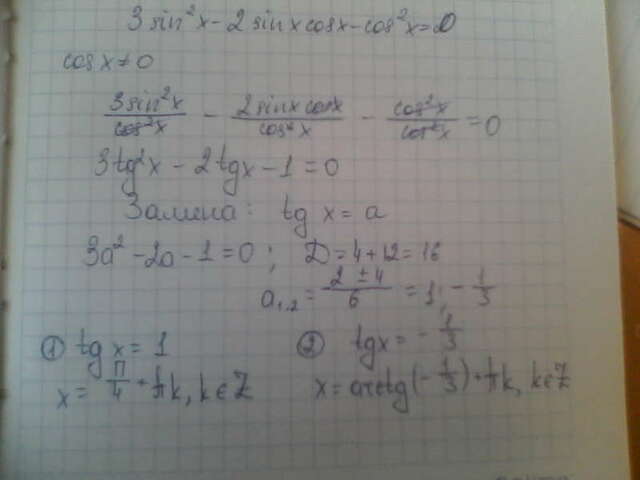 3sin²x - 2sinxcosx - cos²x = 0
cosx ≠ 0
3sin²x/cos²x - 2sinxcosx/cos²x - cos²x/cos²x = 0
3tg²x - 2tgx - 1 = 0
Замена: tg x = a
3a² - 2a - 1 = 0; D = 4 + 12 = 16
a₁,₂ = (2 ± 4)/6 = 1; -1/3
① tg x = 1 ② tgx = -1/3
x = π/4 + πk, k ∈ Z x = arctg(-1/3) + πk, k ∈ Z